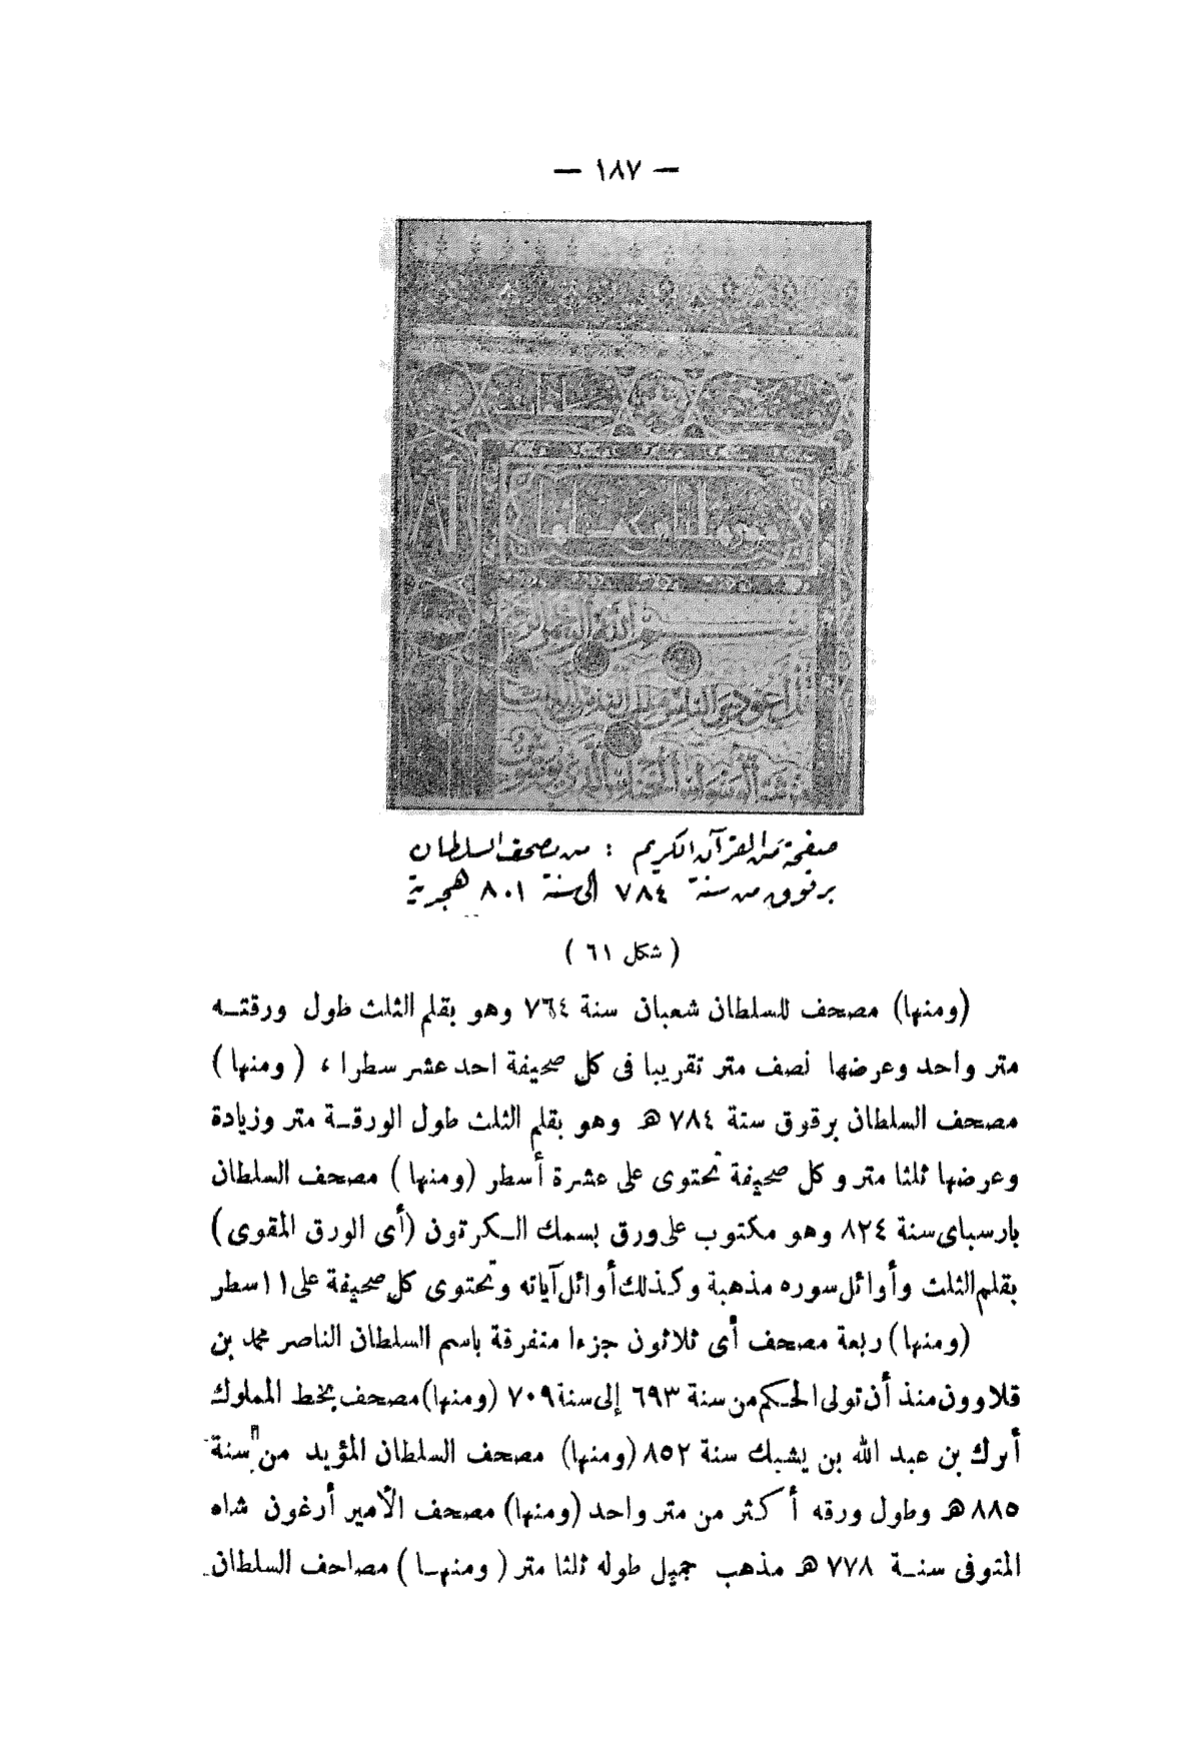 — ١٨٧ —
بسم الله الرحمن الرحيم
قل أعوذ برب الناس ملك الناس إله الناس
صفحة من القرآن الكريم : من مصحف السلطان
برقوق من سنة ٧٨٤ الى سنة ٨٠١ هجرية
( شكل ٦١ )
(ومنها) مصحف للسلطان شعبان سنة ٧٦٤ وهو بقلم الثلث طول ورقتـه
متر واحد وعرضها نصف متر تقريبا فى كل صحيفة احد عشر سطرا ، ( ومنها )
مصحف السلطان برقوق سنة ٧٨٤ هـ وهو بقلم الثلث طول الورقـة متر وزيادة
وعرضها ثلثا متر و كل صحيفة تحتوى على عشرة أسطر (ومنها ) مصحف السلطان
بارسباى سنة ٨٢٤ وهو مكتوب على ورق بسمك الـكرتون (أى الورق المقوى)
بقلم الثلث وأوائل سوره مذهبة وكذلك أوائل آياته وتحتوى كل صحيفة على ١١ سطر
(ومنها) ربعة مصحف أى ثلاثون جزءا متفرقة باسم السلطان الناصر محمد بن
قلاوون منذ أن تولى الحـكم من سنة ٦٩٣ إلى سنة ٧٠٩ (ومنها) مصحف بخط المملوك
أبرك بن عبد الله بن يشبك سنة ٨٥٢ (ومنها) مصحف السلطان المؤيد من سنة
٨٨٥ هـ وطول ورقه أكثر من متر واحد (ومنها) مصحف الأمير أرغون شاه
المتوفى سنـة ٧٧٨ هـ مذهب جميل طوله ثلثا متر ( ومنهـا ) مصاحف السلطان